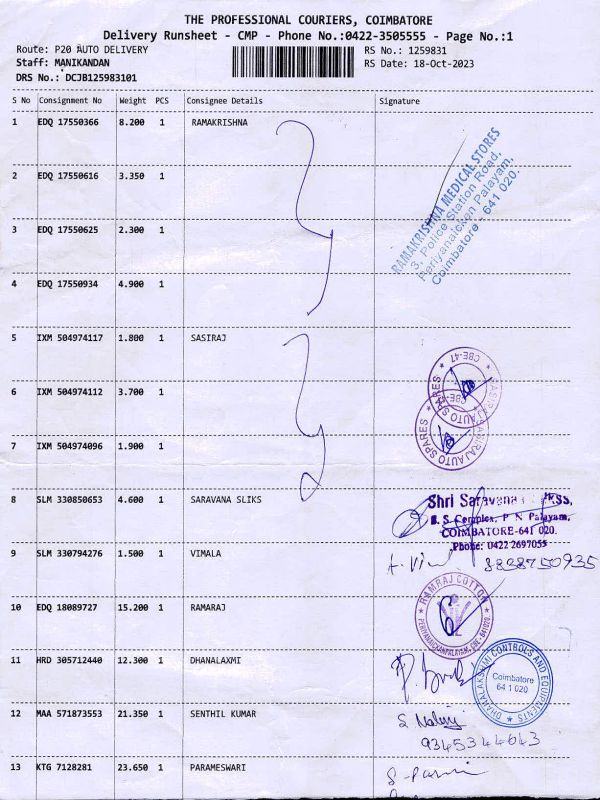 THE PROFESSIONAL COURIERS, COIMBATORE
Delivery Runsheet - CMP - Phone No.:0422-3505555 - Page No.:1
Route: P20 AUTO DELIVERY
RS No.: 1259831
Staff: MANIKANDAN
RS Date: 18-Oct-2023
DRS No.: DCJB125983101
S No Consignment No Weight PCS Consignee Details Signature
1 EDQ 17550366 8.200 1 RAMAKRISHNA
RAMAKRISHNA MEDICAL STORES
3, Police Station Road,
Periyanaicken Palayam,
Coimbatore - 641 020.
2 EDQ 17550616 3.350 1
3 EDQ 17550625 2.300 1
4 EDQ 17550934 4.900 1
5 IXM 504974117 1.800 1 SASIRAJ
SASIRAJ AUTO SPARES
CBE-47
6 IXM 504974112 3.700 1
SASIRAJ AUTO SPARES
CBE-47
7 IXM 504974096 1.900 1
8 SLM 330850653 4.600 1 SARAVANA SLIKS
Shri Saravana
S. Complex, P N Palayam,
COIMBATORE-641 020.
Phone: 0422 2697055
9 SLM 330794276 1.500 1 VIMALA
8898750935
10 EDQ 18089727 15.200 1 RAMARAJ
RAMRAJ COTTON
PERIYANAICKANPALAYAM, CBE-641020
11 HRD 305712440 12.300 1 DHANALAXMI
DHANALAKSHMI CONTROLS AND EQUIPMENTS
Coimbatore
641 020
12 MAA 571873553 21.350 1 SENTHIL KUMAR
9345344643
13 KTG 7128281 23.650 1 PARAMESWARI